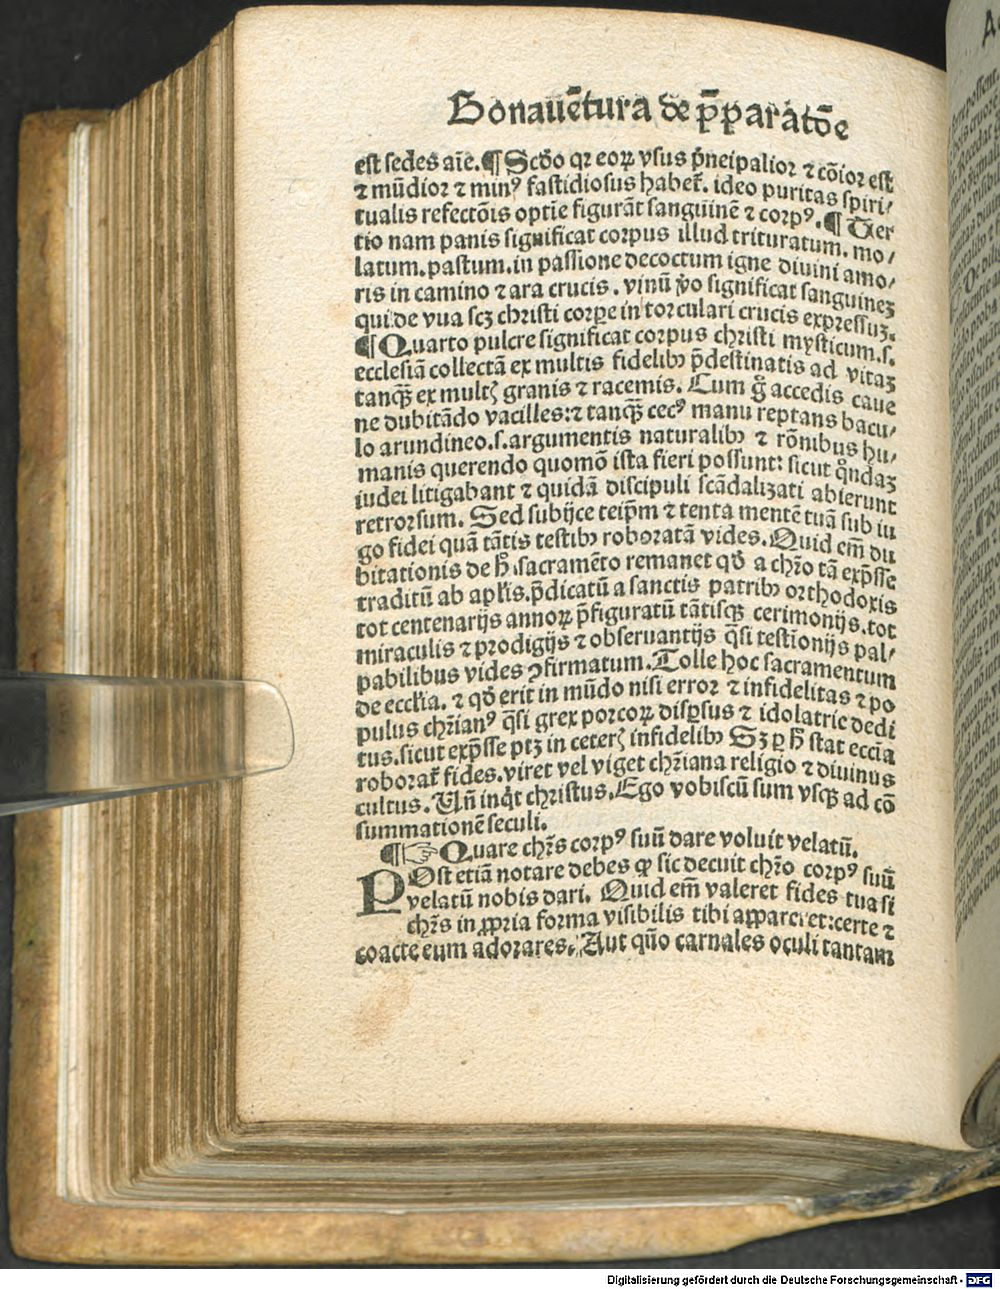 Bonauētura de p̄paratōe
est sedes aīe. ¶ Scd̄o qꝛ eoꝝ vsus p̄ncipalior ⁊ cōior est
⁊ mūdior ⁊ minꝰ fastidiosus habet̄. ideo puritas spiri/
tualis refectōis optīe figurāt sanguinē ⁊ corpꝰ. ¶ Ter
tio nam panis significat corpus illud trituratum. mo/
latum. pastum. in passione decoctum igne diuini amo/
ris in camino ⁊ ara crucis. vinū v̄o significat sanguinez
qui de vua scꝫ christi corpe in torculari crucis expressuꝫ.
¶ Quarto pulcre significat corpus christi mysticum. s.
ecclesiā collectā ex multis fidelibꝫ p̄destinatis ad vitaꝫ
tanqꝫ̄ ex multꝭ granis ⁊ racemis. Cum g̊ accedis caue
ne dubitādo vacilles: ⁊ tanqꝫ̄ cecꝰ manu reptans bacu/
lo arundineo. s. argumentis naturalibꝫ ⁊ rōnibus hu/
manis querendo quomō ista fieri possunt: sicut q̊ndaꝫ
iudei litigabant ⁊ quidā discipuli scādalizati abierunt
retrorsum. Sed subijce teip̄m ⁊ tenta mentē tuā sub iu
go fidei quā tātis testibꝫ roboratā vides. Quid em̄ du
bitationis de h̄ sacramēto remanet qd̄ a chr̄o tā exp̄sse
traditū ab apl̄is. p̄dicatū a sanctis patribꝫ orthodoxis
tot centenarijs annoꝝ p̄figuratū tātisqꝫ cerimonijs. tot
miraculis ⁊ prodigijs ⁊ obseruantijs q̄si testīonijs pal/
pabilibus vides ꝯfirmatum. Tolle hoc sacramentum
de eccl̄ia. ⁊ qd̄ erit in mūdo nisi error ⁊ infidelitas ⁊ po
pulus chr̄ianꝰ q̄si grex porcoꝝ disp̄sus ⁊ idolatrie dedi
tus. sicut exp̄sse ptꝫ in ceterꝭ infidelibꝫ Sꝫ ꝑ h̄ stat eccīa
roborat̄ fides. viret vel viget chr̄iana religio ⁊ diuinus
cultus. Vn̄ inq̇t christus. Ego vobiscū sum vsqꝫ ad cō
summationē seculi.
¶ ☞ Quare chr̄s corpꝰ suū dare voluit velatū.
POst etiā notare debes ꝙ sic decuit chr̄o corpꝰ suū
velatū nobis dari. Quid em̄ valeret fides tua si
chr̄s in ꝓpria forma visibilis tibi appareret: certe ⁊
coacte eum adorares. Aut quō carnales oculi tantam
Digitalisierung gefördert durch die Deutsche Forschungsgemeinschaft - DFG